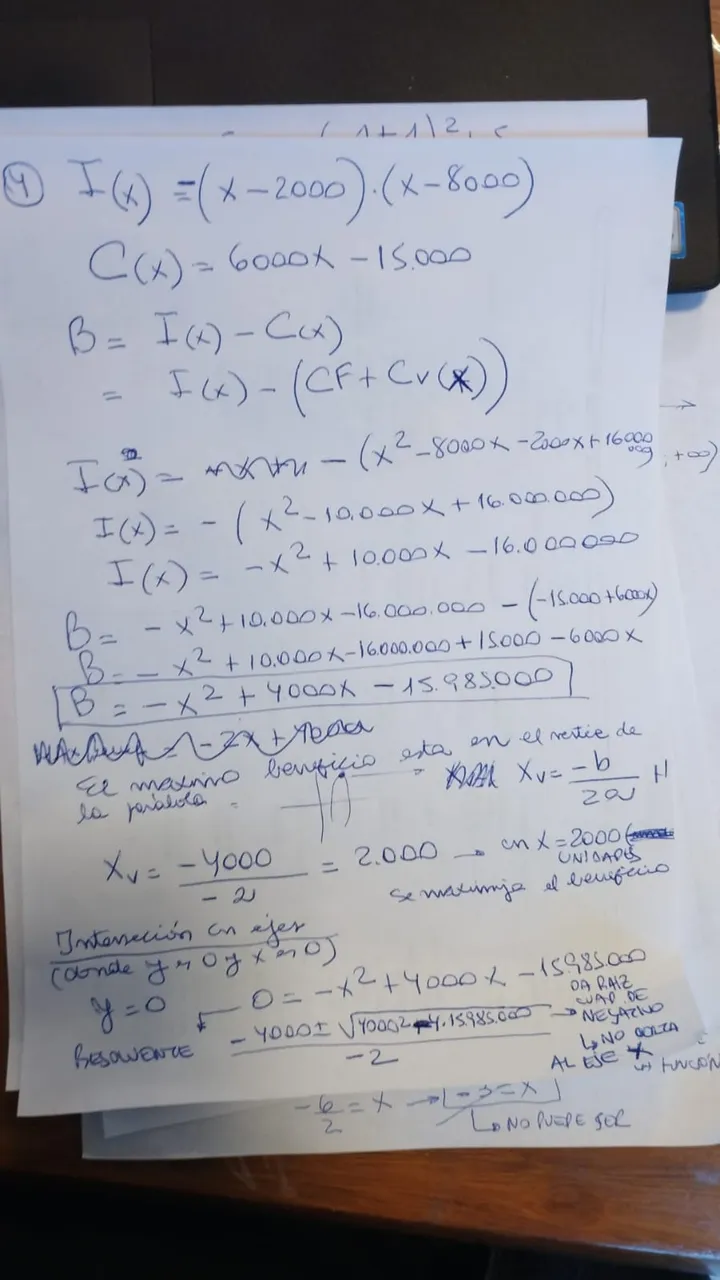 (1+1)2. c
④ I(x) = -(x-2000).(x-8000)
C(x) = 6000x - 15.000
B = I(x) - C(x)
= I(x) - (CF + Cv(x))
I(x) = - (x² - 8000x - 2000x + 16000 000)
; +∞)
I(x) = - (x² - 10.000x + 16.000.000)
I(x) = -x² + 10.000x - 16.000 000
B = -x² + 10.000x - 16.000.000 - (-15.000 + 6000x)
B = -x² + 10.000x - 16000.000 + 15000 - 6000x
B = -x² + 4000x - 15.985.000
= -2x + 4000
El maximo beneficio esta en el vertice de
la parábola = Xv = -b / 2a
Xv = -4000 / -2 = 2.000 → en x = 2000
UNIDADES
se maximiza el beneficio
Intersección con ejes
(donde y es 0 y x es 0)
y = 0 0 = -x² + 4000x - 15.985.000
RESOLVENTE -4000 ± √4000² - 4.15.985.000 / -2 → DA RAIZ
CUAD. DE
NEGATIVO
↳ NO CORTA
AL EJE X
FUNCIÓN
-6/2 = x → -3 = x
↳ NO PUEDE SER